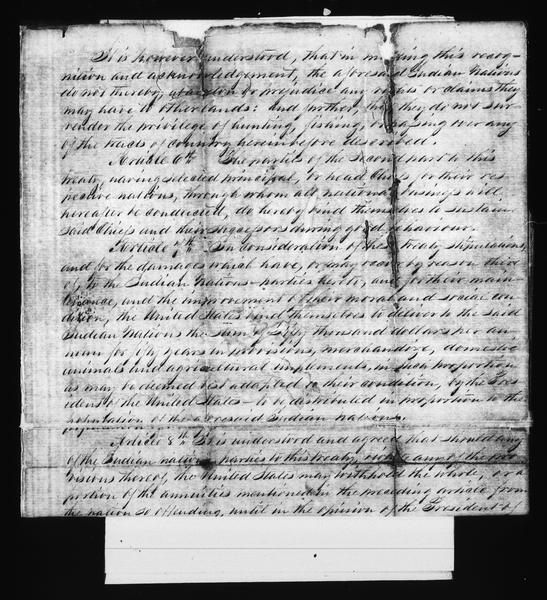 It is however understood, that in making this recog-
nition and acknowledgement, the aforesaid Indian Nations
do not thereby abandon or prejudice any rights or claims they
may have to other lands: and further, that they do not sur-
render the privilege of hunting, fishing, or passing over any
of the tracts of country herein before described.
Article 6th The parties of the second part to this
treaty, having selected principal, or head Chiefs of their res-
pective nations, through whom all national business will
hereafter be conducted, do hereby bind themselves to sustain
said Chiefs and their successors during good behaviour.
Article 7th In consideration of the Treaty stipulations,
and for the damages which have, or may occur by reason there
of, to the Indian Nations parties hereto, and for their main-
tenance, and the improvement of their moral and social con-
dition, the United States bind themselves to deliver to the said
Indian Nations the sum of Fifty thousand dollars per an-
num for fifty years in provisions, merchandize, domestic
animals and agricultural implements, in such proportions
as may be deemed best adapted to their condition, by the Pres-
ident of the United States to be distributed in proportion to the
population of the aforesaid Indian Nations.
Article 8th It is understood and agreed that should any
of the Indian nations parties to this treaty, violate any of the pro-
visions thereof, the United States may withhold the whole, or a
portion of the annuities mentioned in the preceding article from
the nation so offending, until in the opinion of the President of